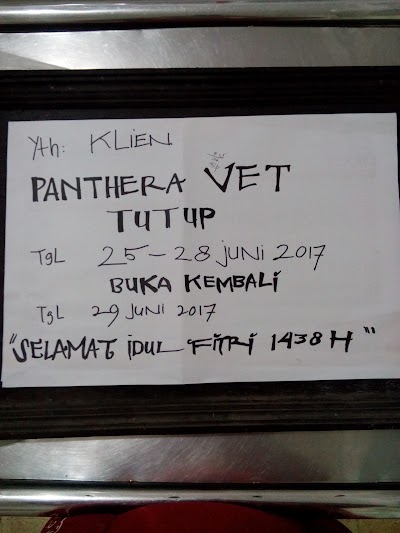 Yth: KLIEN
PANTHERA VET
TUTUP
TGL 25 – 28 JUNI 2017
BUKA KEMBALI
TGL 29 JUNI 2017
"SELAMAT IDUL FITRI 1438 H"